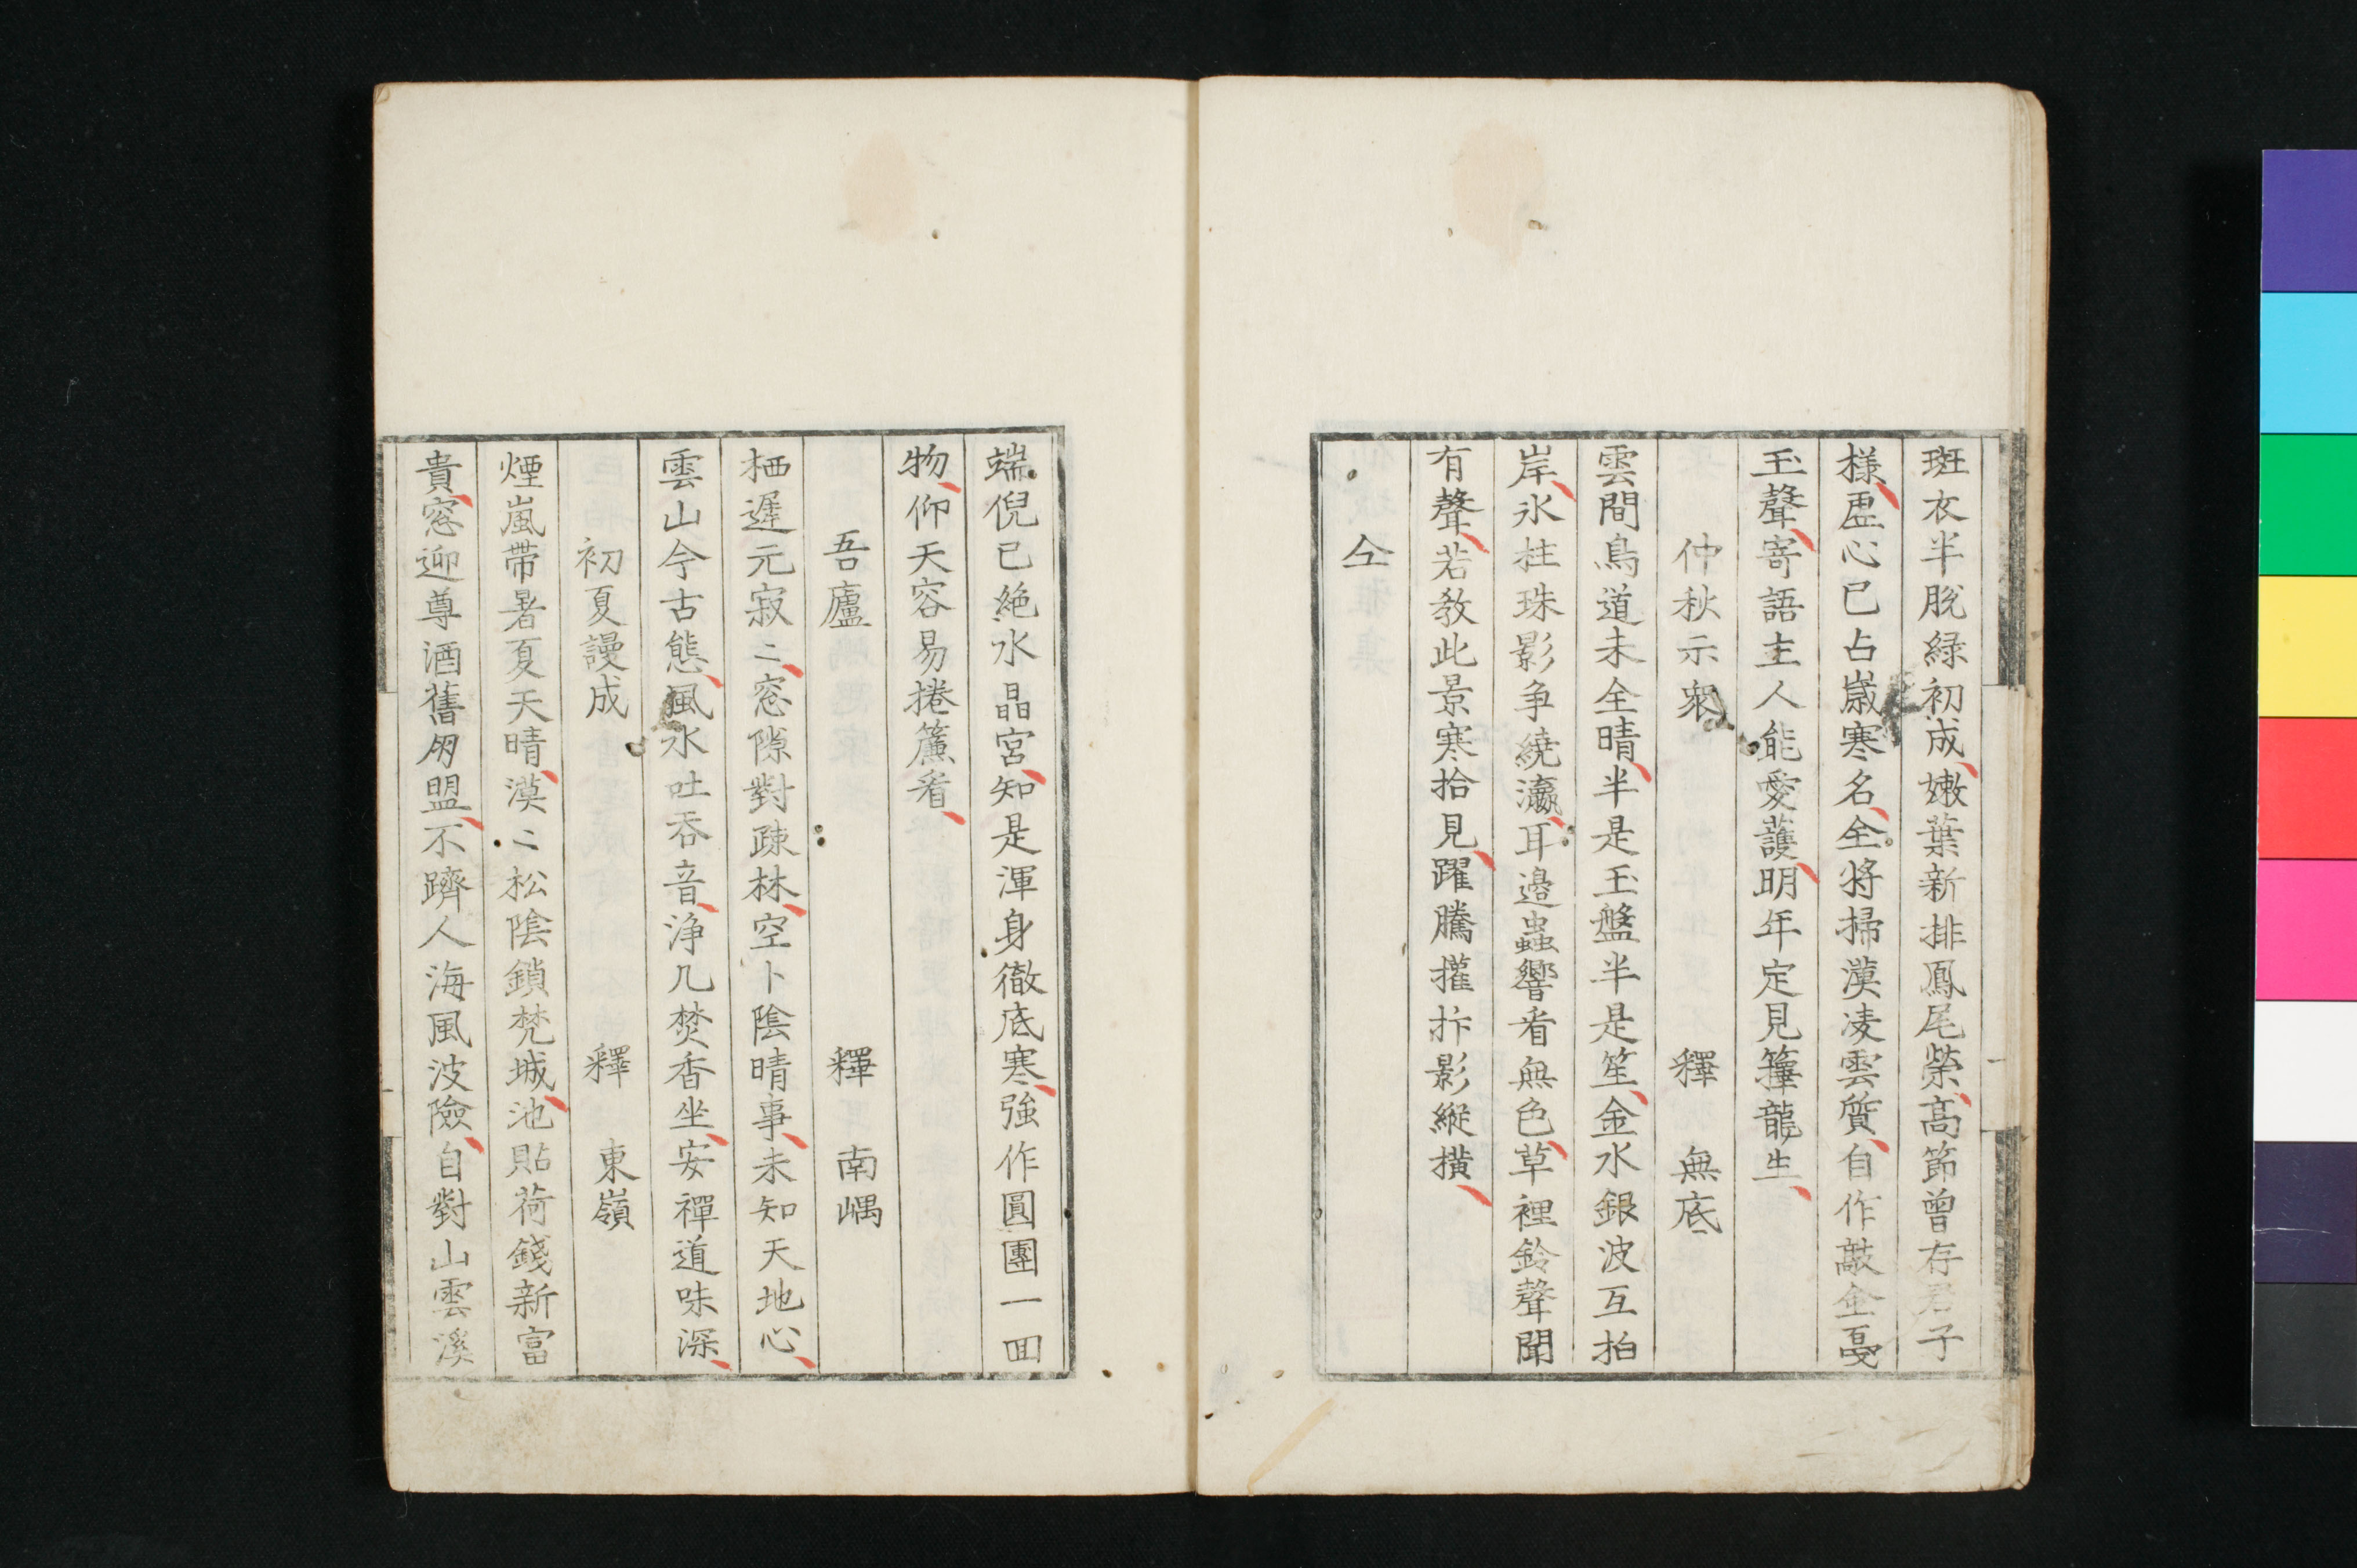 斑衣半脫緑初成嫩葉新排鳳尾榮高節曽存君子
様虗心已占歳寒名全将掃漢凌雲質自作敲金戞
玉聲寄語主人能愛護明年定見籜龍生
仲秋示衆　釋　無底
雲間鳥道未全晴半是玉盤半是笙金水銀波互拍
岸氷柱珠影争繞瀛耳邉蟲響看無色草裡鈴聲聞
有聲若教此景寒拾見躍騰攉抃影縦横
仝
端倪已絶水晶宮知是渾身徹底寒強作圓團一囬
物仰天容易捲簾看
吾廬　釋　南嵎
栖遲元寂〻窓隙對踈林空卜陰晴事未知天地心
雲山今古態風水吐吞音浄几焚香坐安禪道味深
初夏謾成　釋　東嶺
煙嵐帶暑夏天晴漠〻松陰鎖梵城池貼荷錢新富
貴窓迎尊酒舊朋盟不躋人海風波險自對山雲溪